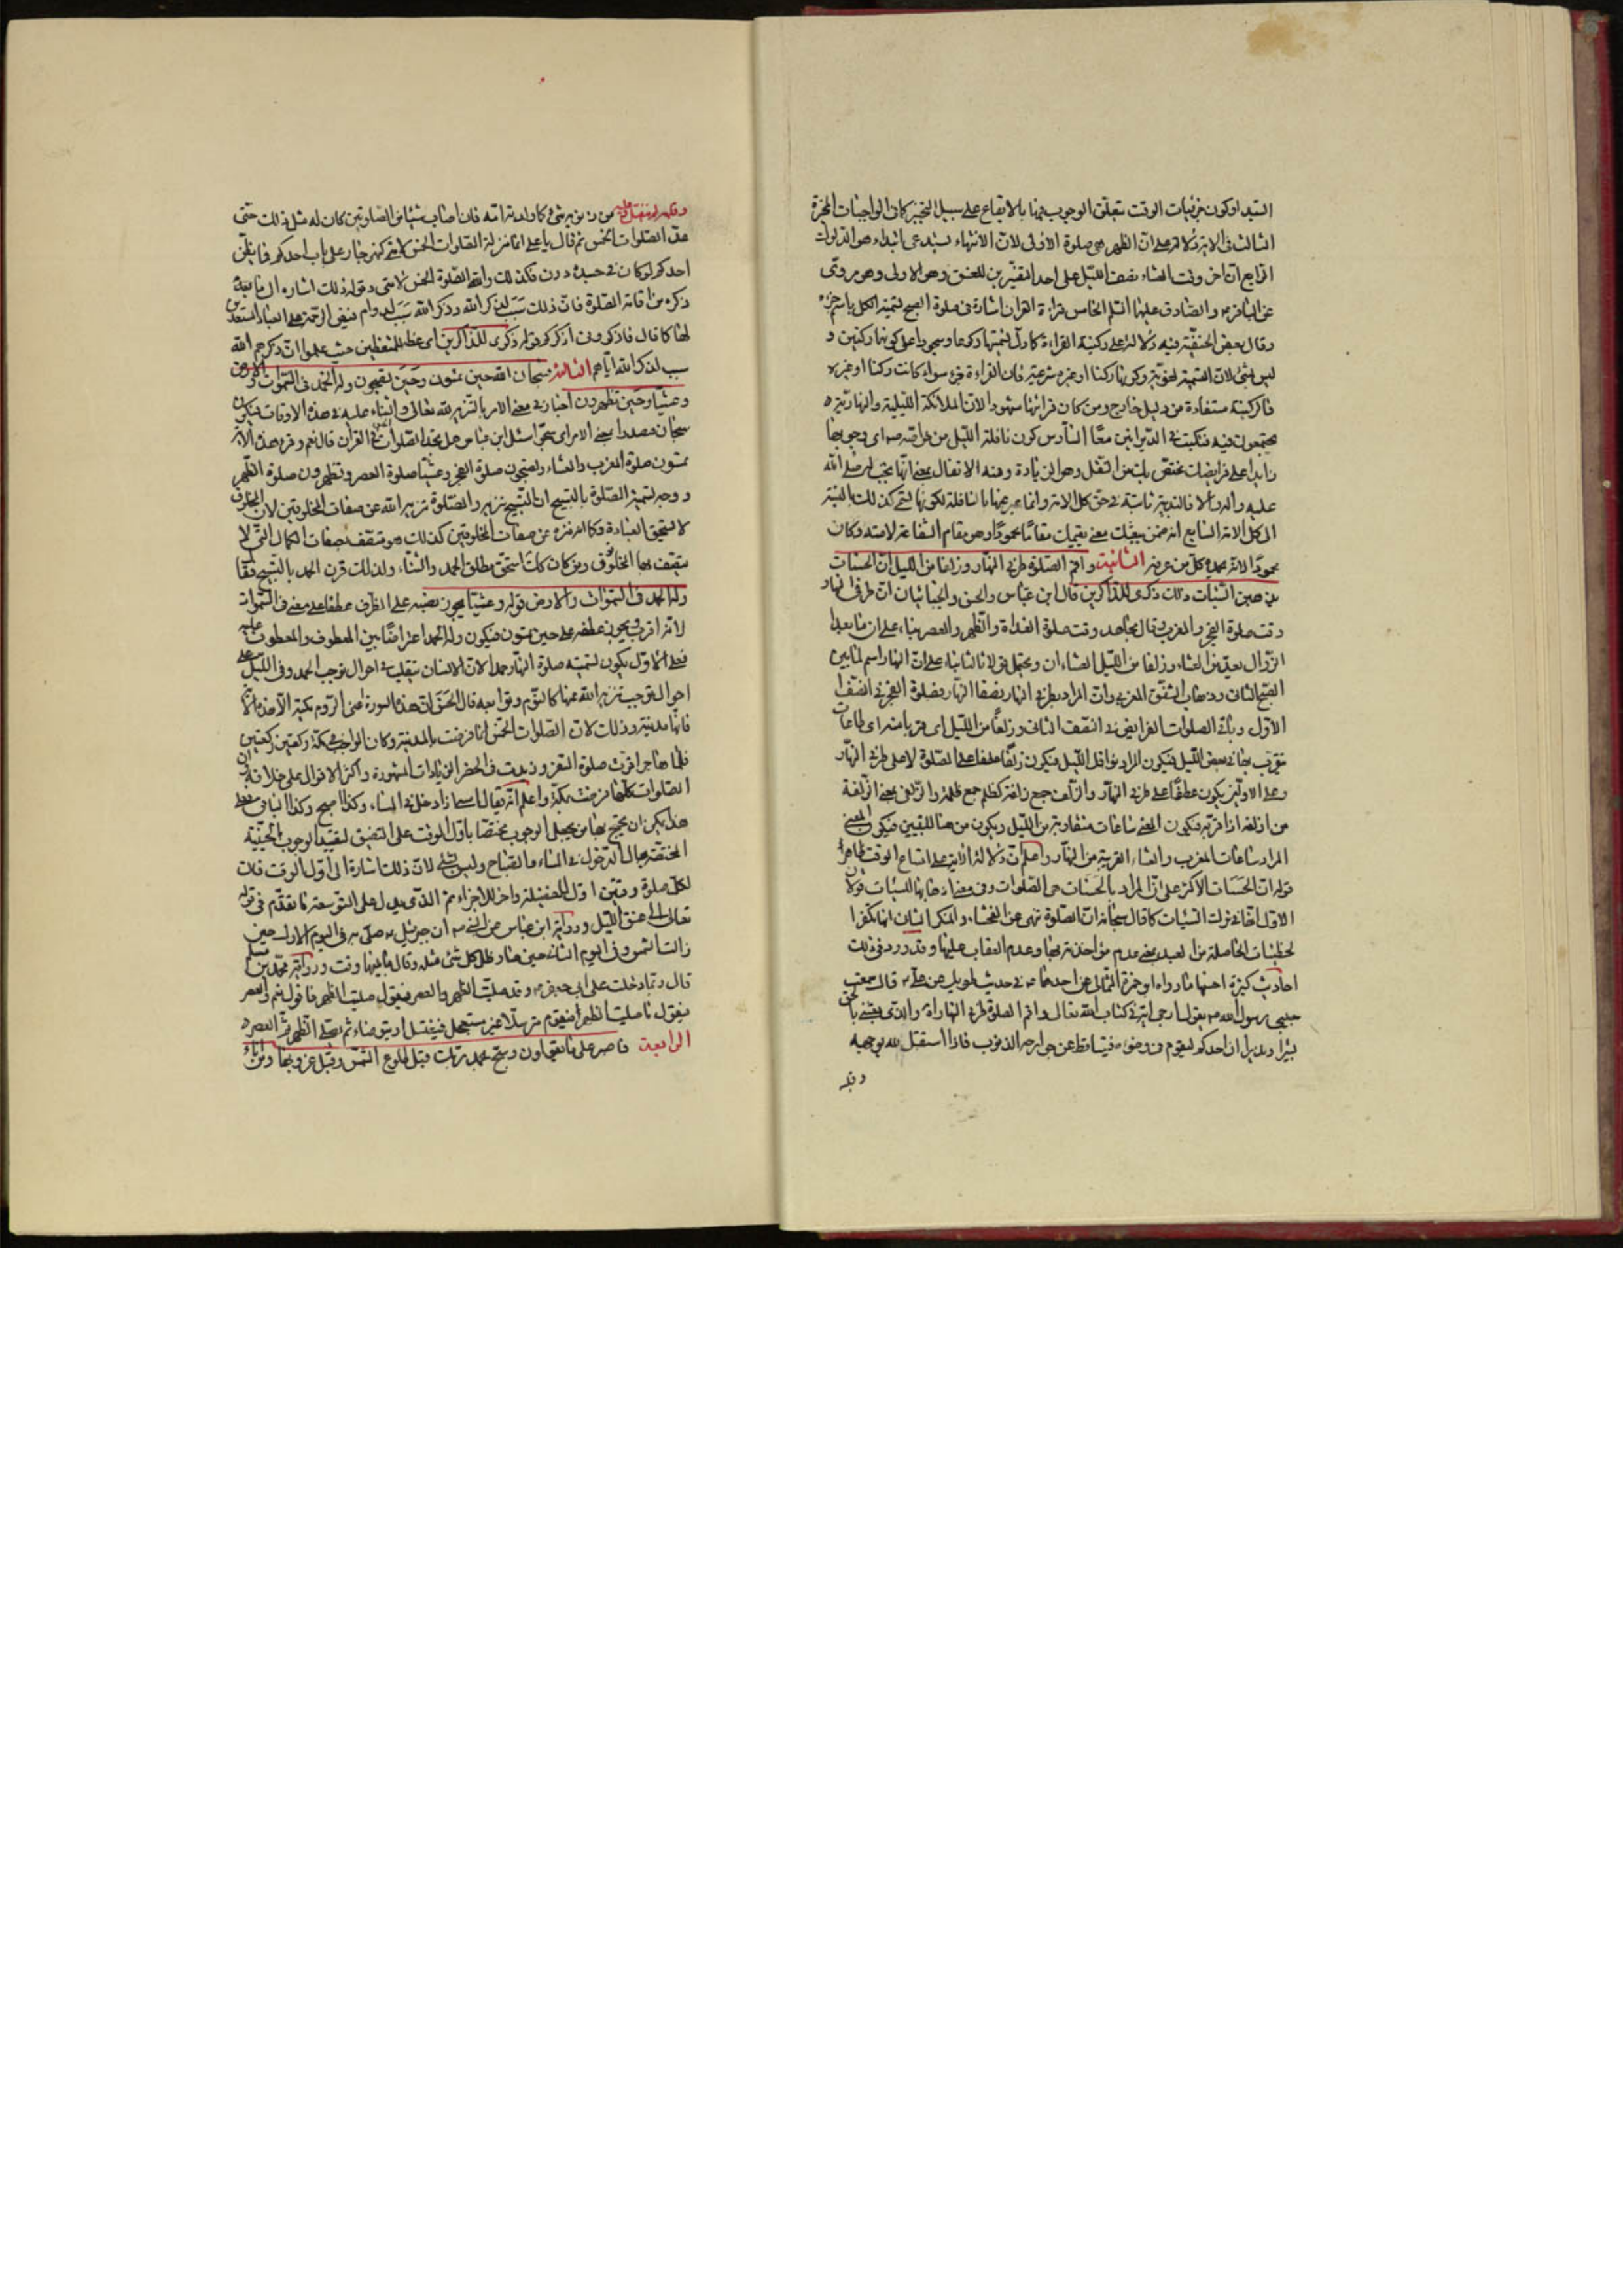 السيد او كون جزئيات الوقت تتعلق الوجوب بها بالايقاع على سبيل التخيير كما في الواجبات المخيرة
الثالث في الاية دلالة على ان الظهر هي صلوة الاولى لان الانتهاء يستدعى ابتداء هو الدلوك
الرابع ان اخر وقت العشاء نصف الليل على احد التفسيرين للغسق وهو الاولى وهو مروى
عن الباقر والصادق عليهما السلم الخامس قراءة القران اشارة الى صلوة الصبح تسمية الكل باسم جزئه
وقال بعض الحنفية فيه دلالة على ركنية القراءة كما دل تسميتها ركوعا وسجودا على كونهما ركنين و
ليس بشئ لان التسمية لغوية وكونها ركنا او غيره شرعية فان القراءة جزء سواء كانت ركنا او غيره
فالركنية مستفادة من دليل خارج ومن كان قرانها مشهودا لان الملائكة الليلية والنهارية
يجتمعون فيه فتكتب في الديوانين معا السادس كون نافلة الليل من خواصه اى وجوبها
زايدا على فرايضك مختص بك من النفل وهو الزيادة ومنه الانفال بمعنى انها يجب له صلى الله
عليه واله والا فالندبية ثابتة في حق كل الامة وانما عبر عنها بالنافلة لكونها لم تكن كذلك بالنسبة
الى كل الامة السابع انه ضمن يبعثك معنى يقيمك مقاما محمودا وهو مقام الشفاعة لامته وكان
محمودا لانه يحمده كل من عرفه الثانية واقم الصلوة طرفي النهار وزلفا من الليل ان الحسنات
يذهبن السيئات ذلك ذكرى للذاكرين قال ابن عباس والحسن والجبائي ان طرفى النهار
وقت صلوة الفجر والمغرب وقال مجاهد وقت صلوة الغداة والظهر والعصر بناء على ان ما بعد
الزوال يعد من العشاء وزلفا من الليل العشاءان ويحتمل قولا ثالثا بناء على ان النهار اسم لما بين
الصبح الثاني وذهاب الشفق المغربى وان المراد بطرفي النهار نصفا النهار فصلوة الفجر في النصف
الاول وباقى الصلوات الفرائض في النصف الثاني وزلفا من الليل اى قربا منه اى طاعات
تتقرب بها في بعض الليل فيكون المراد نوافل الليل فيكون زلفا عطفا على الصلوة لا على طرفي النهار
وعلى الاولين يكون عطفا على طرفي النهار والزلف جمع زلفة كظلم جمع ظلمة والزلفى بمعنى الزلفة
من ازلفه اذا قربه فيكون المعنى ساعات متقاربة من الليل ويكون من هنا للتبيين فيكون المعنى
المراد ساعات المغرب والعشاء القريبة من النهار واعلم ان دلالة الاية على اتساع الوقت ظاهرة
قوله ان الحسنات الاكثر على ان المراد بالحسنات هي الصلوات وفي معنى اذهابها للسيئات قولان
الاول انها في ترك السيئات كما قال سبحانه ان الصلوة تنهى عن الفحشاء والمنكر الثاني انها تكفر
لخطيئات الحاصلة من العبد بمعنى عدم مؤاخذته بها وعدم العقاب عليها وقد ورد في ذلك
احاديث كثيرة احسنها ما رواه ابو حمزة الثمالي عن احدهما في حديث طويل عن على قال سمعت
حبيبي رسول الله يقول ارجى اية في كتاب الله تعالى واقم الصلوة طرفي النهار اه والذي بعثنى بالحق
بشيرا ونذيرا ان احدكم ليقوم في وضوءه فيتساقط عن جوارحه الذنوب فاذا استقبل لله بوجهه
وقلبه
وقلبه لم ينفتل وعليه من ذنوبه شئ كما ولدته امه فان اصاب شيئا من الصلوتين كان له مثل ذلك حتى
عد الصلوات الخمس ثم قال يا على انما منزلة الصلوات الخمس لامتى كنهر جار على باب احدكم فما يظن
احدكم لو كان في جسده درن فكذلك والله الصلوة الخمس لامتى وقوله ذلك اشارة الى ما
ذكره من اقامة الصلوة فان ذلك سبب لذكر الله وذكر الله سبب لدوام فيض الرحمة على العباد المستعدين
لها كما قال فاذكرونى اذكركم قوله ذكرى للذاكرين اى عظة للمتعظين حيث علموا ان ذكرهم الله
سبب لذكر الله اياهم الثالثة فسبحان الله حين تمسون وحين تصبحون وله الحمد في السموات والارض
وعشيا وحين تظهرون اخبار في معنى الامر بالتنزيه لله تعالى والثناء عليه في هذه الاوقات فيكون
سبحان مصدرا بمعنى الامر اى سبحوا سئل ابن عباس هل تجد الصلوات الخمس في القران قال نعم وقرء هذه الاية
تمسون صلوة المغرب والعشاء وتصبحون صلوة الفجر وعشيا صلوة العصر وتظهرون صلوة الظهر
ووجه تسمية الصلوة بالتسبيح ان التسبيح تنزيه والصلوة تنزيه الله عن صفات المخلوقين لان المخلوق
لا يستحق العبادة وكما انه منزه عن صفات المخلوقين كذلك هو متصف بصفات الكمال التي لا
يتصف بها المخلوق ومن كان كك استحق مطلق الحمد والثناء ولذلك قرن الحمد بالتسبيح فقال
وله الحمد في السموات والارض قوله وعشيا يجوز نصبه على الظرف عطفا على معنى في السموات
لانه اقرب ويجوز عطفه على حين تمسون فيكون وله الحمد اعتراضا بين المعطوف والمعطوف عليه
فعلى الاول يكون تسمية صلوة النهار حمدا لان الانسان يتقلب في احوال توجب الحمد وفي الليل على
احوال توجب تنزيه الله عنها كالنوم وتوابعه قال الحسن ان هذه السورة اعنى الروم مكية الا هذه الاية
فانها مدنية وذلك لان الصلوات الخمس انما فرضت بالمدينة وكان الواجب بمكة ركعتين ركعتين
فلما هاجر اقرت صلوة السفر وزيدت في الحضر الزيادات المشهورة واكثر الاقوال على خلافه وان
الصلوات كلها فرضت بمكة واعلم انه يقال امسا اذا دخل في المساء وكذا اصبح وكذا الباقى فعلى
هذا يمكن ان يحتج بها من يجعل الوجوب مختصا باول الوقت على التضيق لتقييد الوجوب بالحينية
المختصة بحال الدخول في المساء والصباح وليس بشئ لان ذلك اشارة الى اول الوقت فان
لكل صلوة وقتين اول للفضيلة واخر للاجزاء ثم الذى يدل على التوسعة ما تقدم في قوله
تعالى الى غسق الليل ورواية ابن عباس عن النبي ان جبرئيل صلى به في اليوم الاول حين
زالت الشمس وفي اليوم الثاني حين صار ظل كل شئ مثله وقال ما بينهما وقت ورواية محمد بن مسلم
قال ربما دخلت على ابى جعفر وقد صليت الظهر والعصر فيقول صليت الظهر فاقول نعم والعصر
فيقول ما صليت الظهر فيقوم مترسلا غير مستعجل فيغتسل او يتوضاء ثم يصلى الظهر ثم العصر
الرابعة فاصبر على ما يقولون وسبح بحمد ربك قبل طلوع الشمس وقبل غروبها ومن اناء